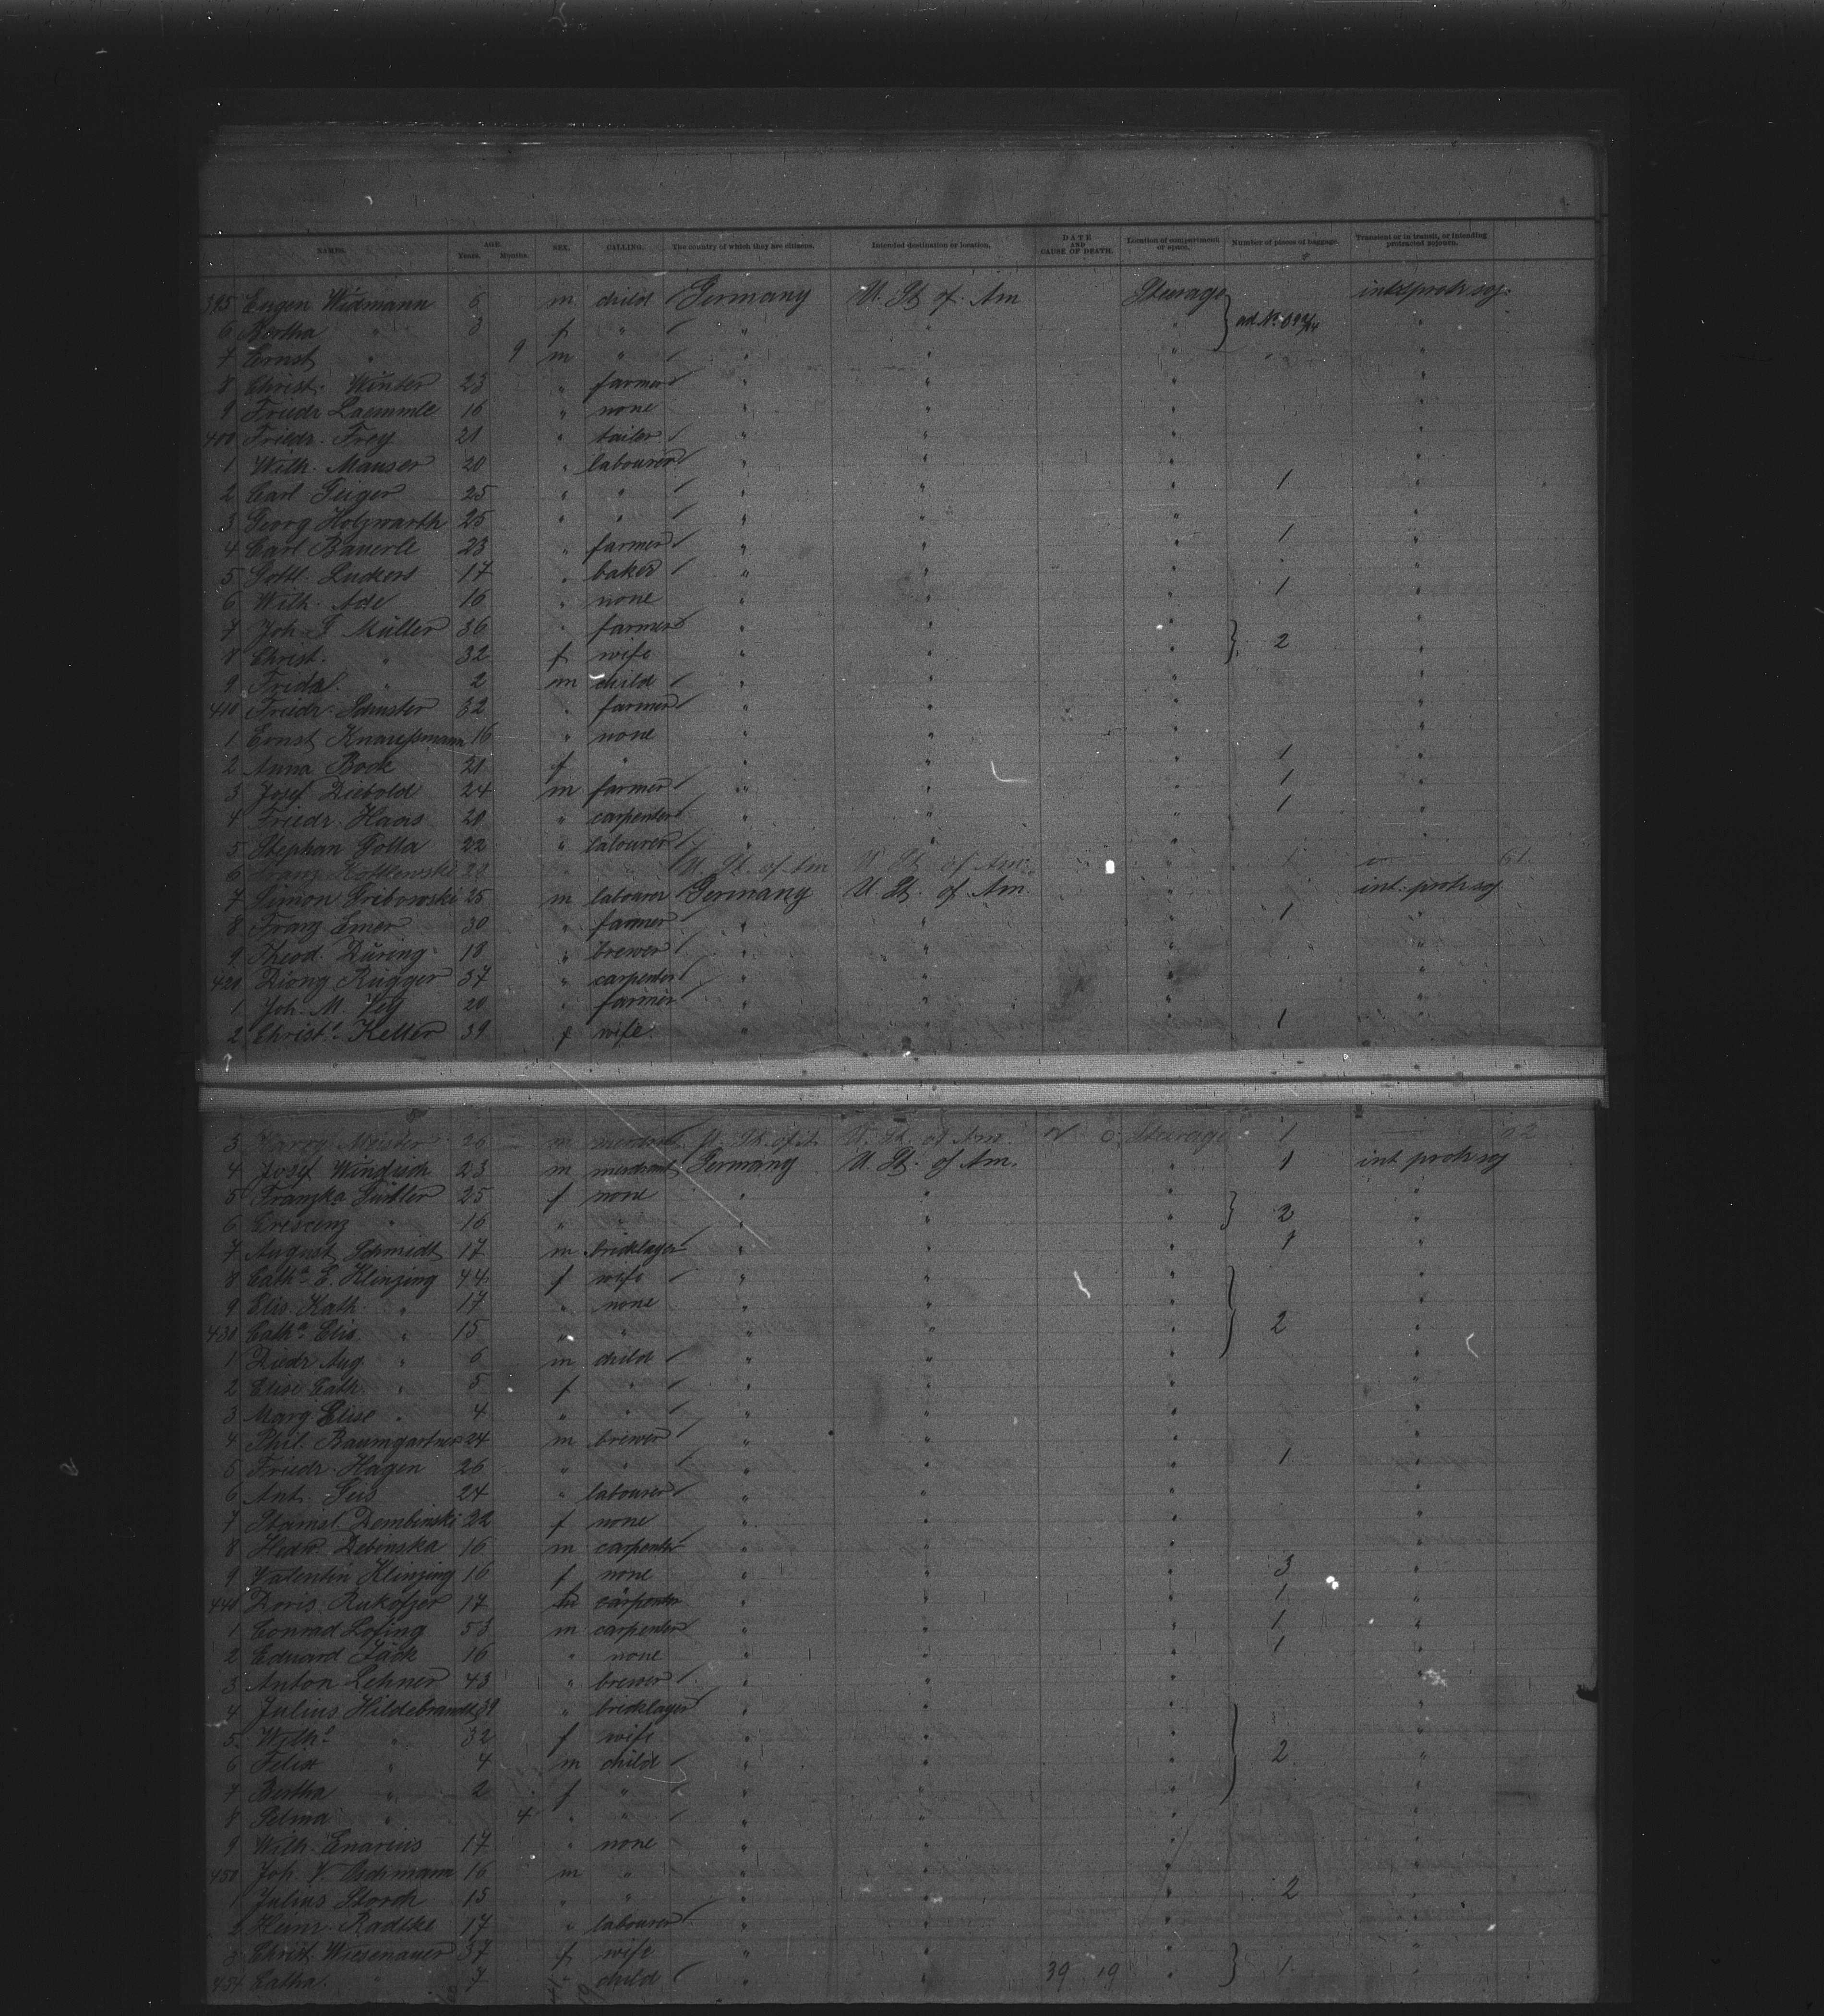 NAMES. AGE. Years. Months. SEX. CALLING. The country of which they are citizens. Intended destination or location. DATE AND CAUSE OF DEATH. Location of compartment or space. Number of pieces of baggage. Transient or in transit, or intending protracted sojourn.
395 Eugen Widmann 6 m child Germany U. St. of Am Steerage
6 Bertha " 3 f " " " "
7 Ernst " 9 m " " " " "
8 Christ. Winter 23 " farmer " " " "
9 Friedr Laemmle 16 " none " " " "
400 Friedr. Frey 21 " tailor " " " "
1 Wilh. Mauser 20 " labourer " " " "
2 Carl Geiger 25 " " " " " 1 "
3 Georg Holzwarth 25 " " " " " "
4 Carl Bauerle 23 " farmer " " " 1 "
5 Gottl. 17 " baker " " " "
6 Wilh. Ade 16 " none " " " 1 "
7 Joh. G Müller 36 " farmer " " " "
8 Christ. " 32 f wife " " " 2 "
9 Frida " 2 m child " " " "
410 Friedr. Schuster 32 " farmer " " " "
1 Ernst Knaußmann 16 " none " " " "
2 Anna Bock 21 f " " " " 1 "
3 Josef Diebold 24 m farmer " " " 1 "
4 Friedr. Haas 20 " carpenter " " " 1 "
5 Stephan Golla 22 " labourer " " " "
6 Franz 28 " " U. St. of Am U. St. of Am. "
7 Simon Gribowski 25 m labourer Germany U. St. of Am " int. protr. soj
8 Franz Emer 30 " farmer " " " 1 "
9 Theod. Düring 18 " brewer " " " "
420 Rugger 37 " carpenter " " " "
1 Joh. M. 20 " farmer " " " "
2 Christ. Keller 39 f wife " " " 1
3 Harry Meister 26 m merchant U. St. of A. U. St. of Am. Steerage 1
4 Josef Windisch 23 m merchant Germany U. St. of Am. " 1 int protr soj
5 Franzka 25 f none " " " "
6 Crescenz " 16 " " " " " 2 "
7 August Schmidt 17 m bricklayer " " " 1 "
8 Cath.a E. Klinzing 44 f wife " " " "
9 Elis. Kath. " 17 " none " " " "
430 Cath.a Elis. " 15 " " " " " 2 "
1 Diedr Aug. " 6 m child " " " "
2 Elise Cath. " 5 f " " " " "
3 Marg Elise " 4 " " " " " "
4 Phil. Baumgartner 24 m brewer " " " "
5 Friedr. Hagen 26 " " " " " 1 "
6 Ant. 24 " labourer " " " "
7 Dembinski 22 f none " " " "
8 Hedw. Debinska 16 m carpenter " " " "
9 Valentin Klinzing 16 f none " " " 3 "
440 Doris Rukofzer 17 carpenter " " " 1 "
1 Conrad Lofing 53 m carpenter " " " 1 "
2 Eduard Jäck 16 " none " " " 1 "
3 Anton Lehner 43 " brewer " " " "
4 Julius Hildebrandt 39 " bricklayer " " " "
5 Wilh. " 32 f wife " " " "
6 Felix " 4 m child " " " 2 "
7 Bertha " 2 f " " " " "
8 Selma " 4 " " " " " "
9 Wilh. Enarius 17 " none " " " "
450 Joh. V. 16 m " " " " "
1 Julius Storch 15 " " " " " 2 "
2 Heinr. Radtke 17 " labourer " " " "
3 Christ. Wiesenauer 37 f wife " " " "
454 Catha. " 7 " child " " 39 19 " 1 "